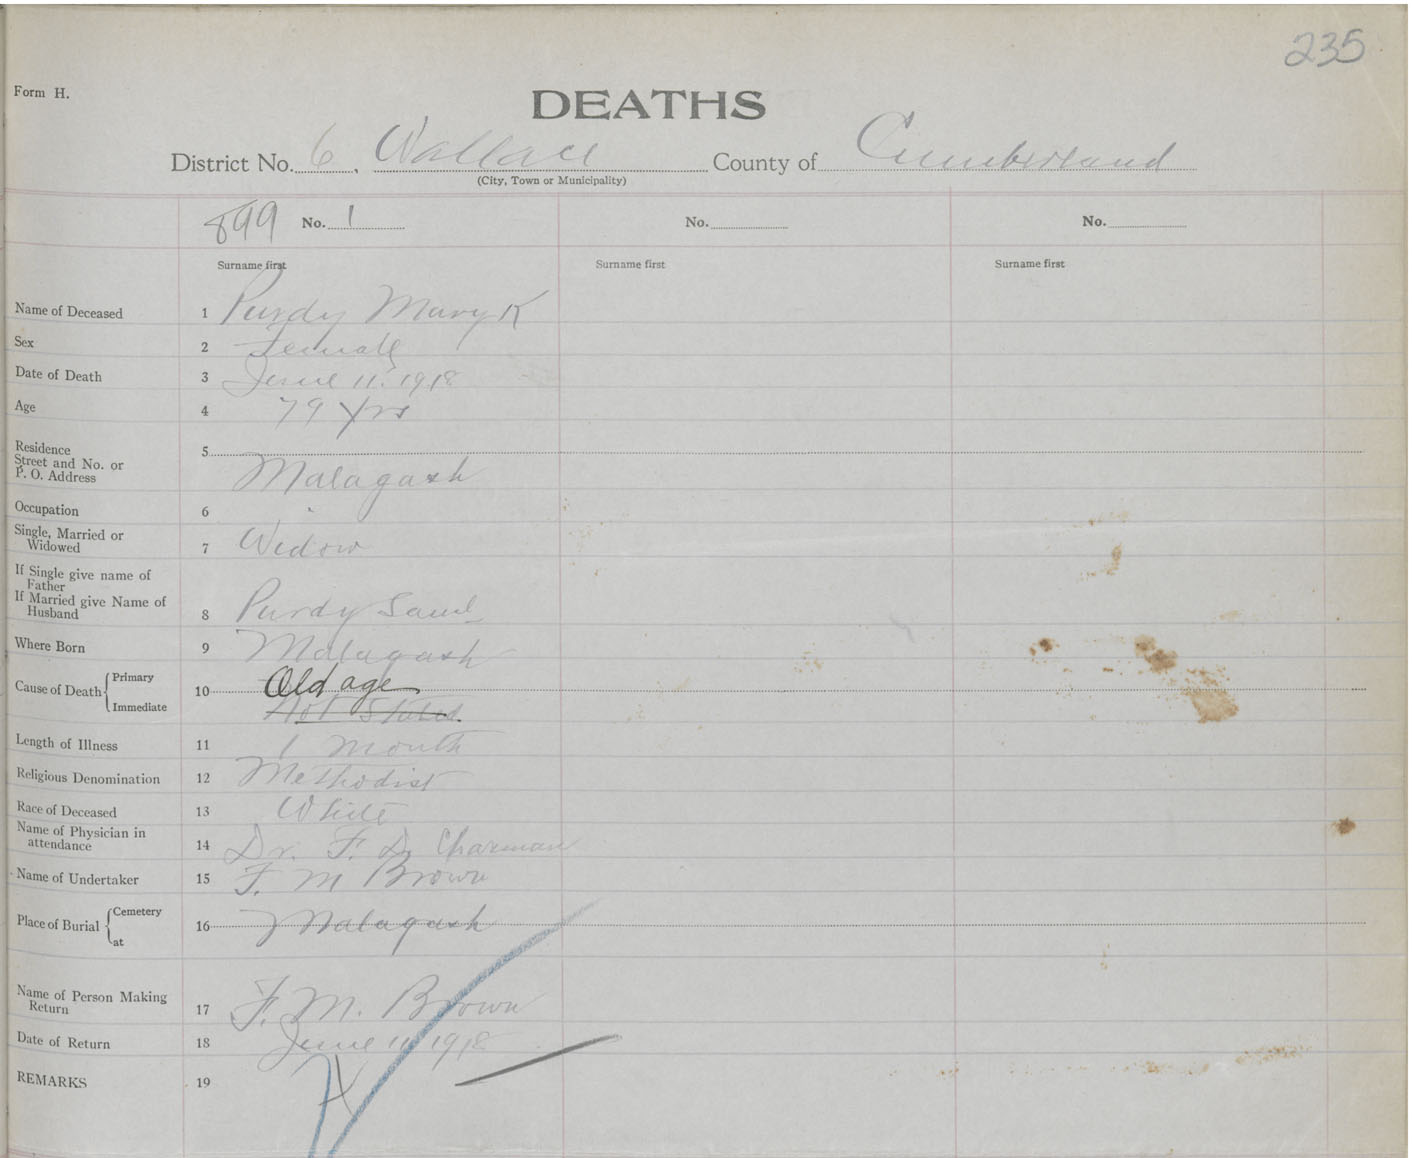 235
Form H.
DEATHS
District No. 6, Wallace County of Cumberland
(City, Town or Municipality)
899 No. 1 No. No.
Surname first Surname first Surname first
Name of Deceased 1 Purdy Mary K
Sex 2 Female
Date of Death 3 June 11. 1918
Age 4 79 Yrs
Residence 5
Street and No. or
P. O. Address Malagash
Occupation 6
Single, Married or
Widowed 7 Widow
If Single give name of
Father
If Married give Name of
Husband 8 Purdy Saml
Where Born 9 Malagash
Cause of Death Primary 10 Old age
Immediate Not Stated.
Length of Illness 11 1 Month
Religious Denomination 12 Methodist
Race of Deceased 13 White
Name of Physician in
attendance 14 Dr. F. D. Charman
Name of Undertaker 15 F. M Brown
Place of Burial Cemetery 16 Malagash
at
Name of Person Making
Return 17 F. M. Brown
Date of Return 18 June 11 1918
REMARKS 19